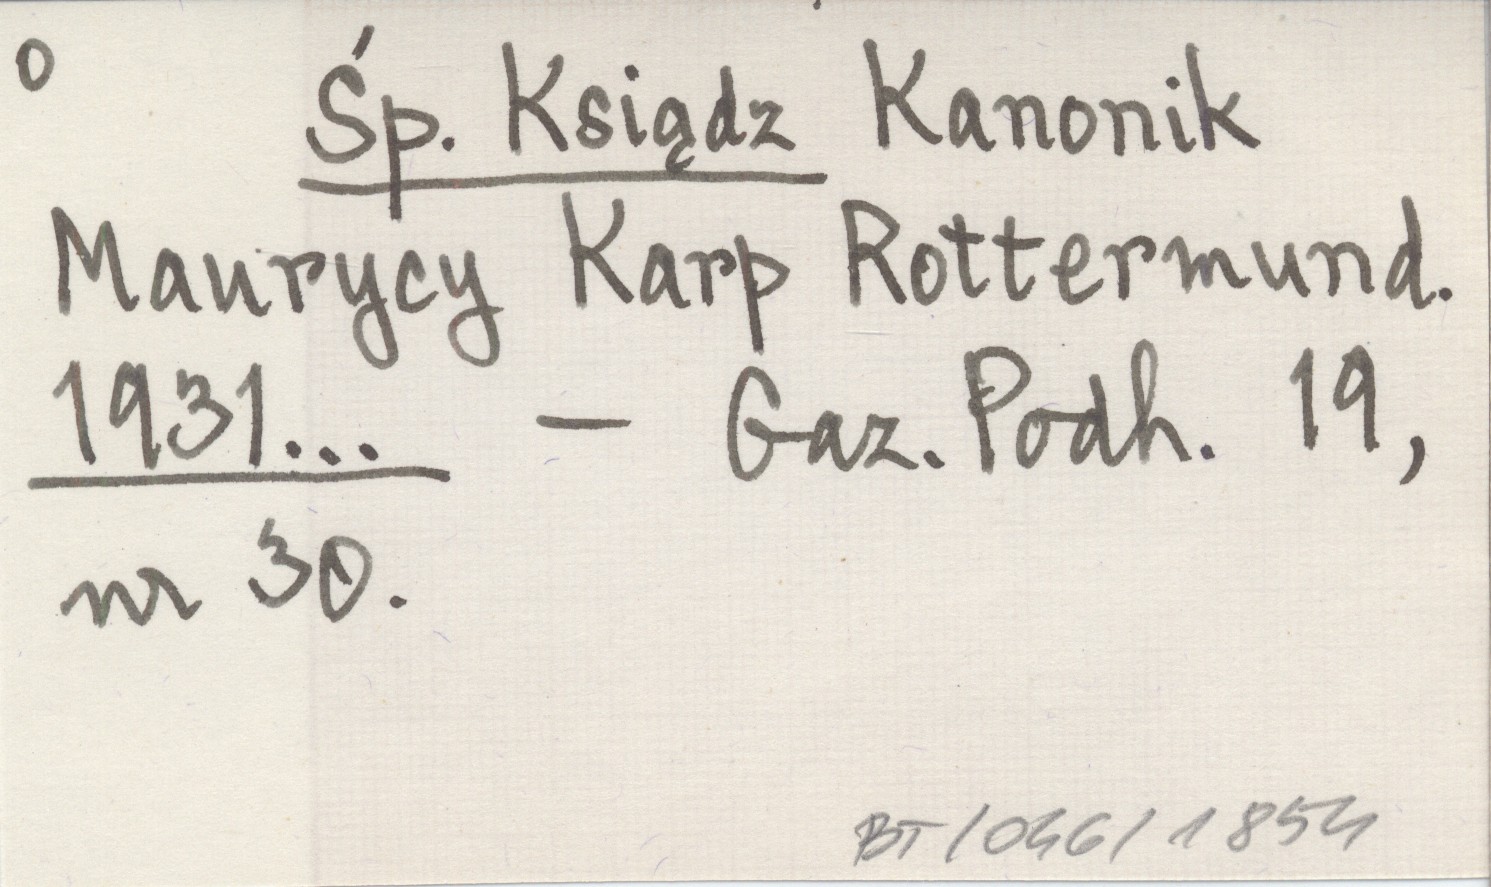 o Śp. Ksiądz Kanonik
Maurycy Karp Rottermund.
1931... – Gaz. Podh. 19,
nr 30.
BT/046/1854